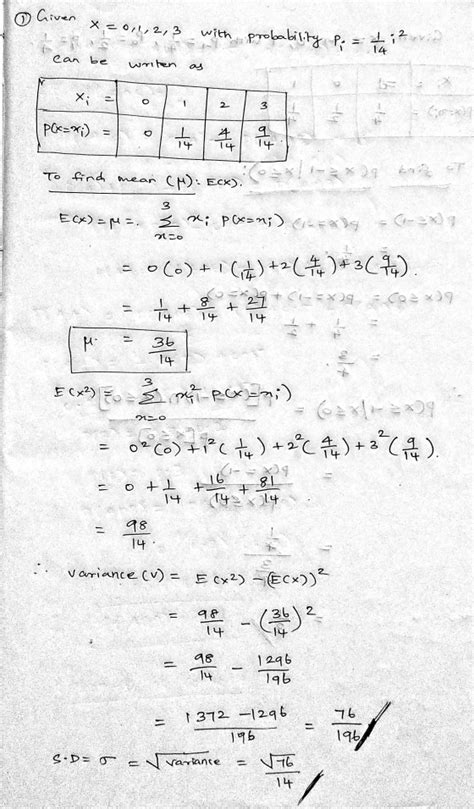 ① Given x = 0,1,2,3 with probability Pi = 1/14 i²
can be writen as
Xi = 0 1 2 3
P(x=xi) = 0 1/14 4/14 9/14
To find mean (μ): E(x).
E(x) = μ = 3 Σ x=0 xi P(x=xi)
= 0(0) + 1(1/14) + 2(4/14) + 3(9/14).
= 1/14 + 8/14 + 27/14
μ = 36/14
E(x²) = 3 Σ x=0 xi² P(x=xi)
= 0²(0) + 1²(1/14) + 2²(4/14) + 3²(9/14).
= 0 + 1/14 + 16/14 + 81/14
= 98/14.
∴ variance (v) = E(x²) - (E(x))²
= 98/14 - (36/14)²
= 98/14 - 1296/196
= 1372 - 1296/196 = 76/196
S.D = σ = √variance = √76/14